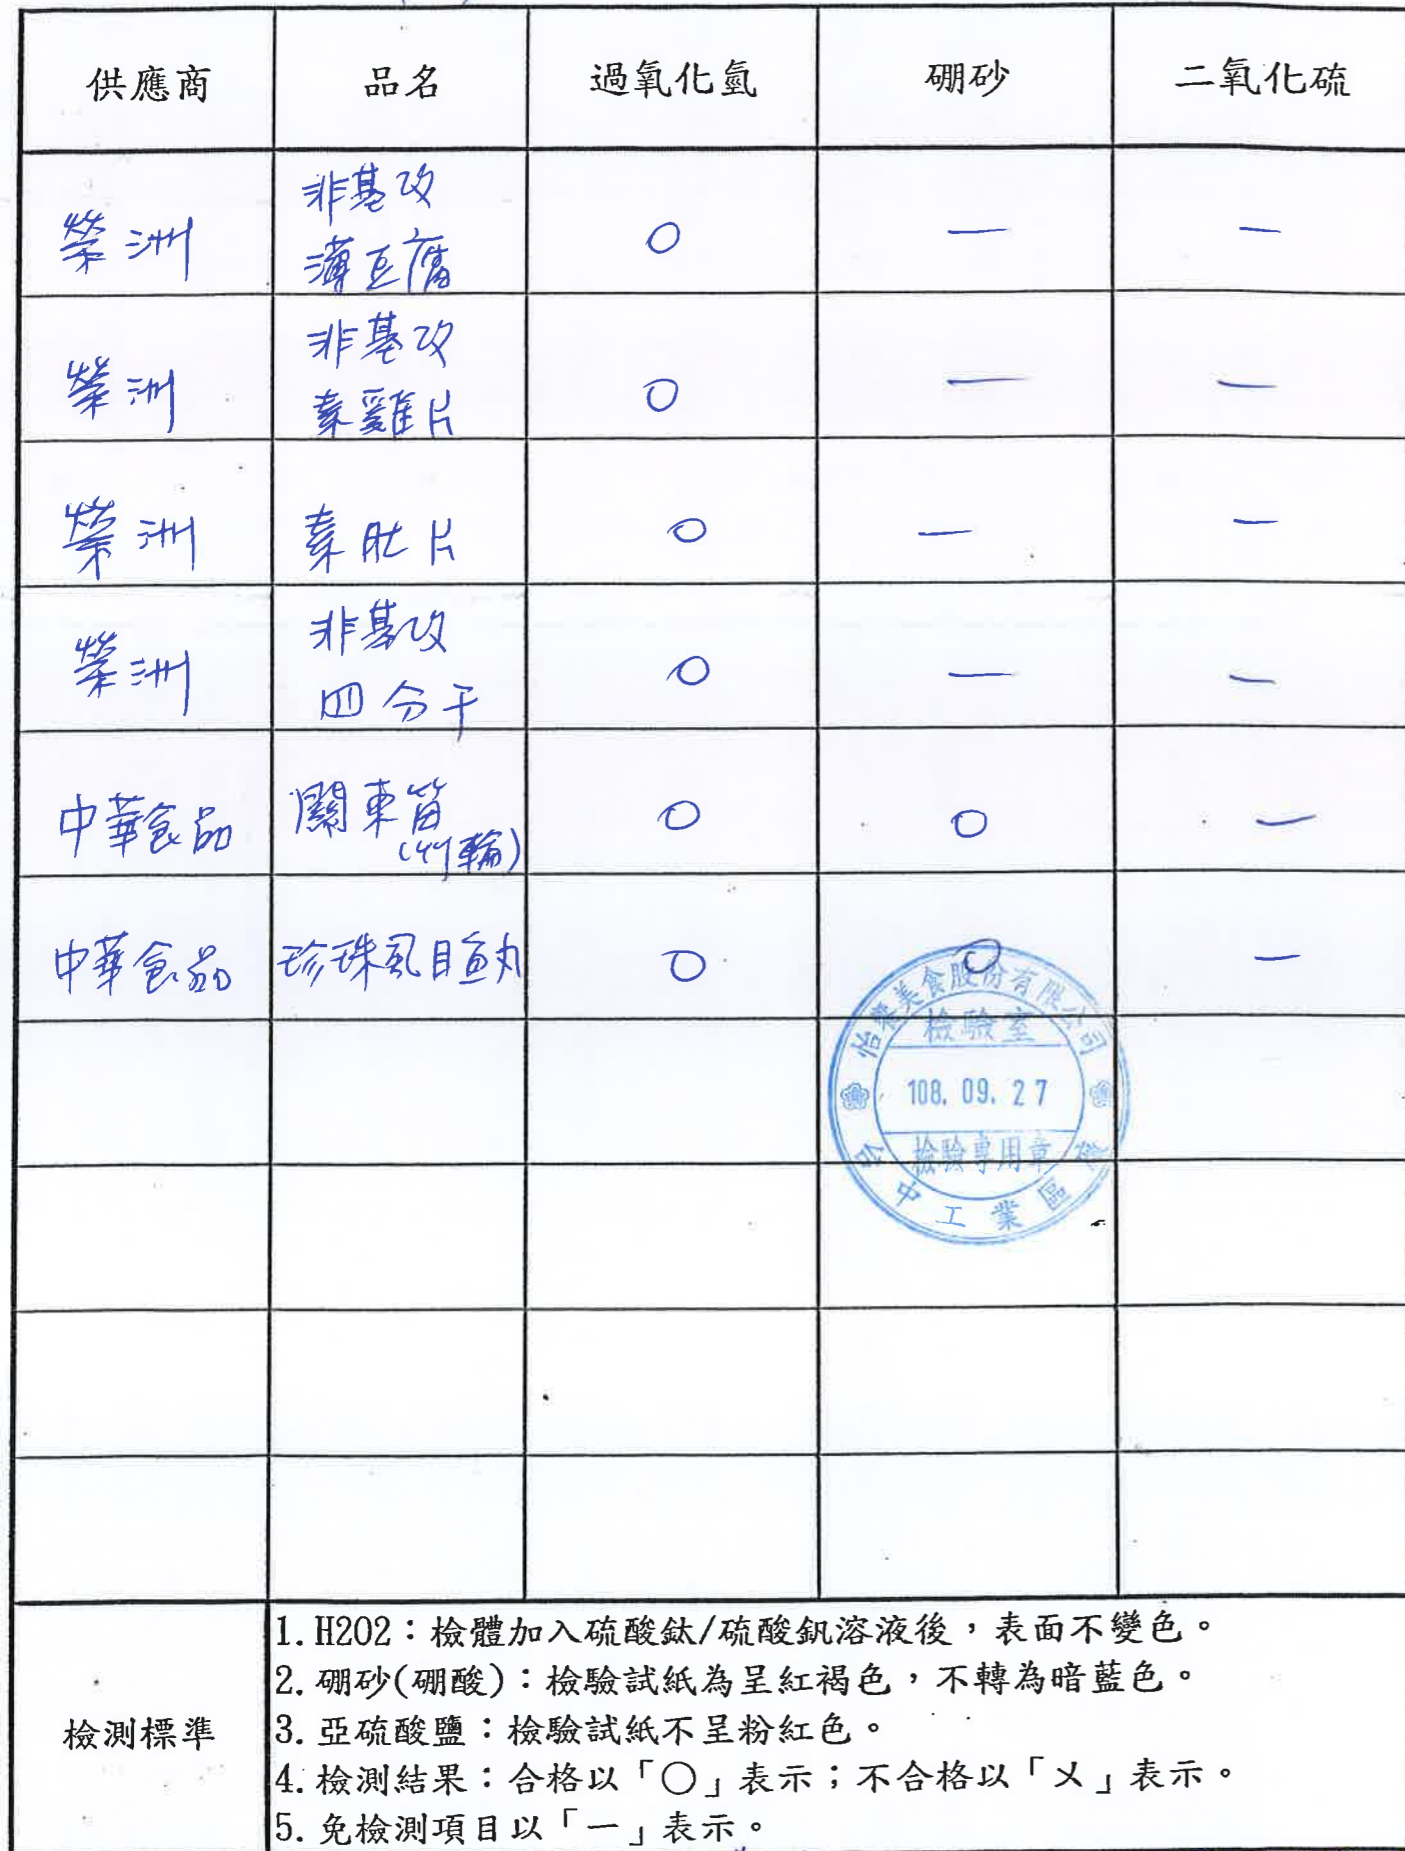 供應商 品名 過氧化氫 硼砂 二氧化硫
榮洲 非基改 ○ — —
薄豆腐
榮洲 非基改 ○ — —
素雞片
榮洲 素肚片 ○ — —
榮洲 非基改 ○ — —
四分干
中華食品 關東笛 ○ ○ —
(竹輪)
中華食品 珍珠虱目魚丸 ○ ○ —
怡樂美食股份有限公司
檢驗室
108. 09. 27
檢驗專用章
台中工業區
檢測標準
1. H2O2：檢體加入硫酸鈦/硫酸釩溶液後，表面不變色。
2. 硼砂(硼酸)：檢驗試紙為呈紅褐色，不轉為暗藍色。
3. 亞硫酸鹽：檢驗試紙不呈粉紅色。
4. 檢測結果：合格以「○」表示；不合格以「ㄨ」表示。
5. 免檢測項目以「一」表示。